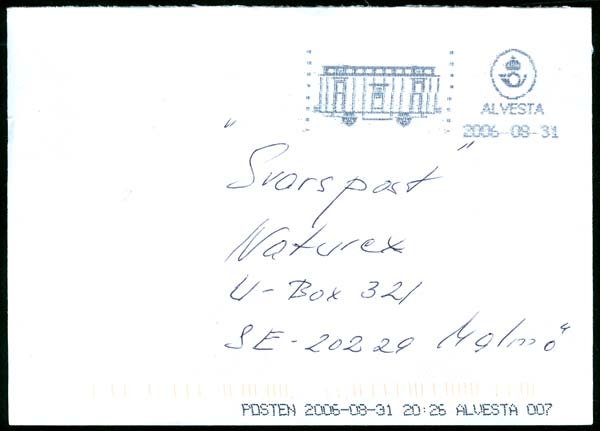 ALVESTA
2006-08-31
"Svarspost"
Naturex
U-Box 321
SE-20229 Malmö
POSTEN 2006-08-31 20:26 ALVESTA 007